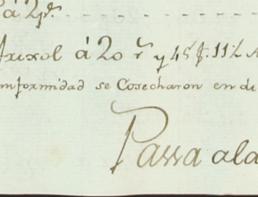 á 2 r.
Frixol á 20 r. y 45 f. 11 l.
conformidad se Cosecharon en di
Passa ala